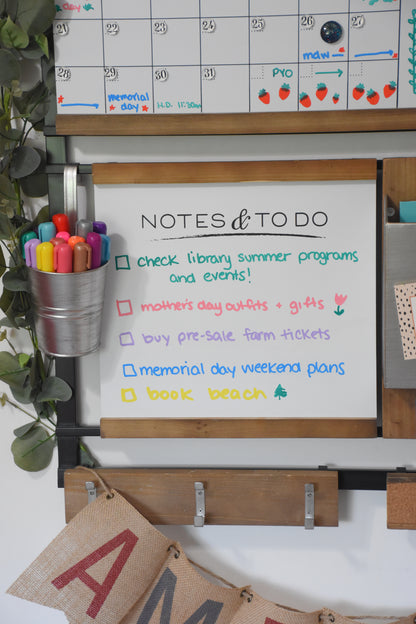 day
21 22 23 24 25 26 27
mdw
28 29 30 31
memorial
day
PYO
NOTES & TO DO
check library summer programs
and events!
mother's day outfits + gifts
buy pre-sale farm tickets
memorial day weekend plans
book beach
A M